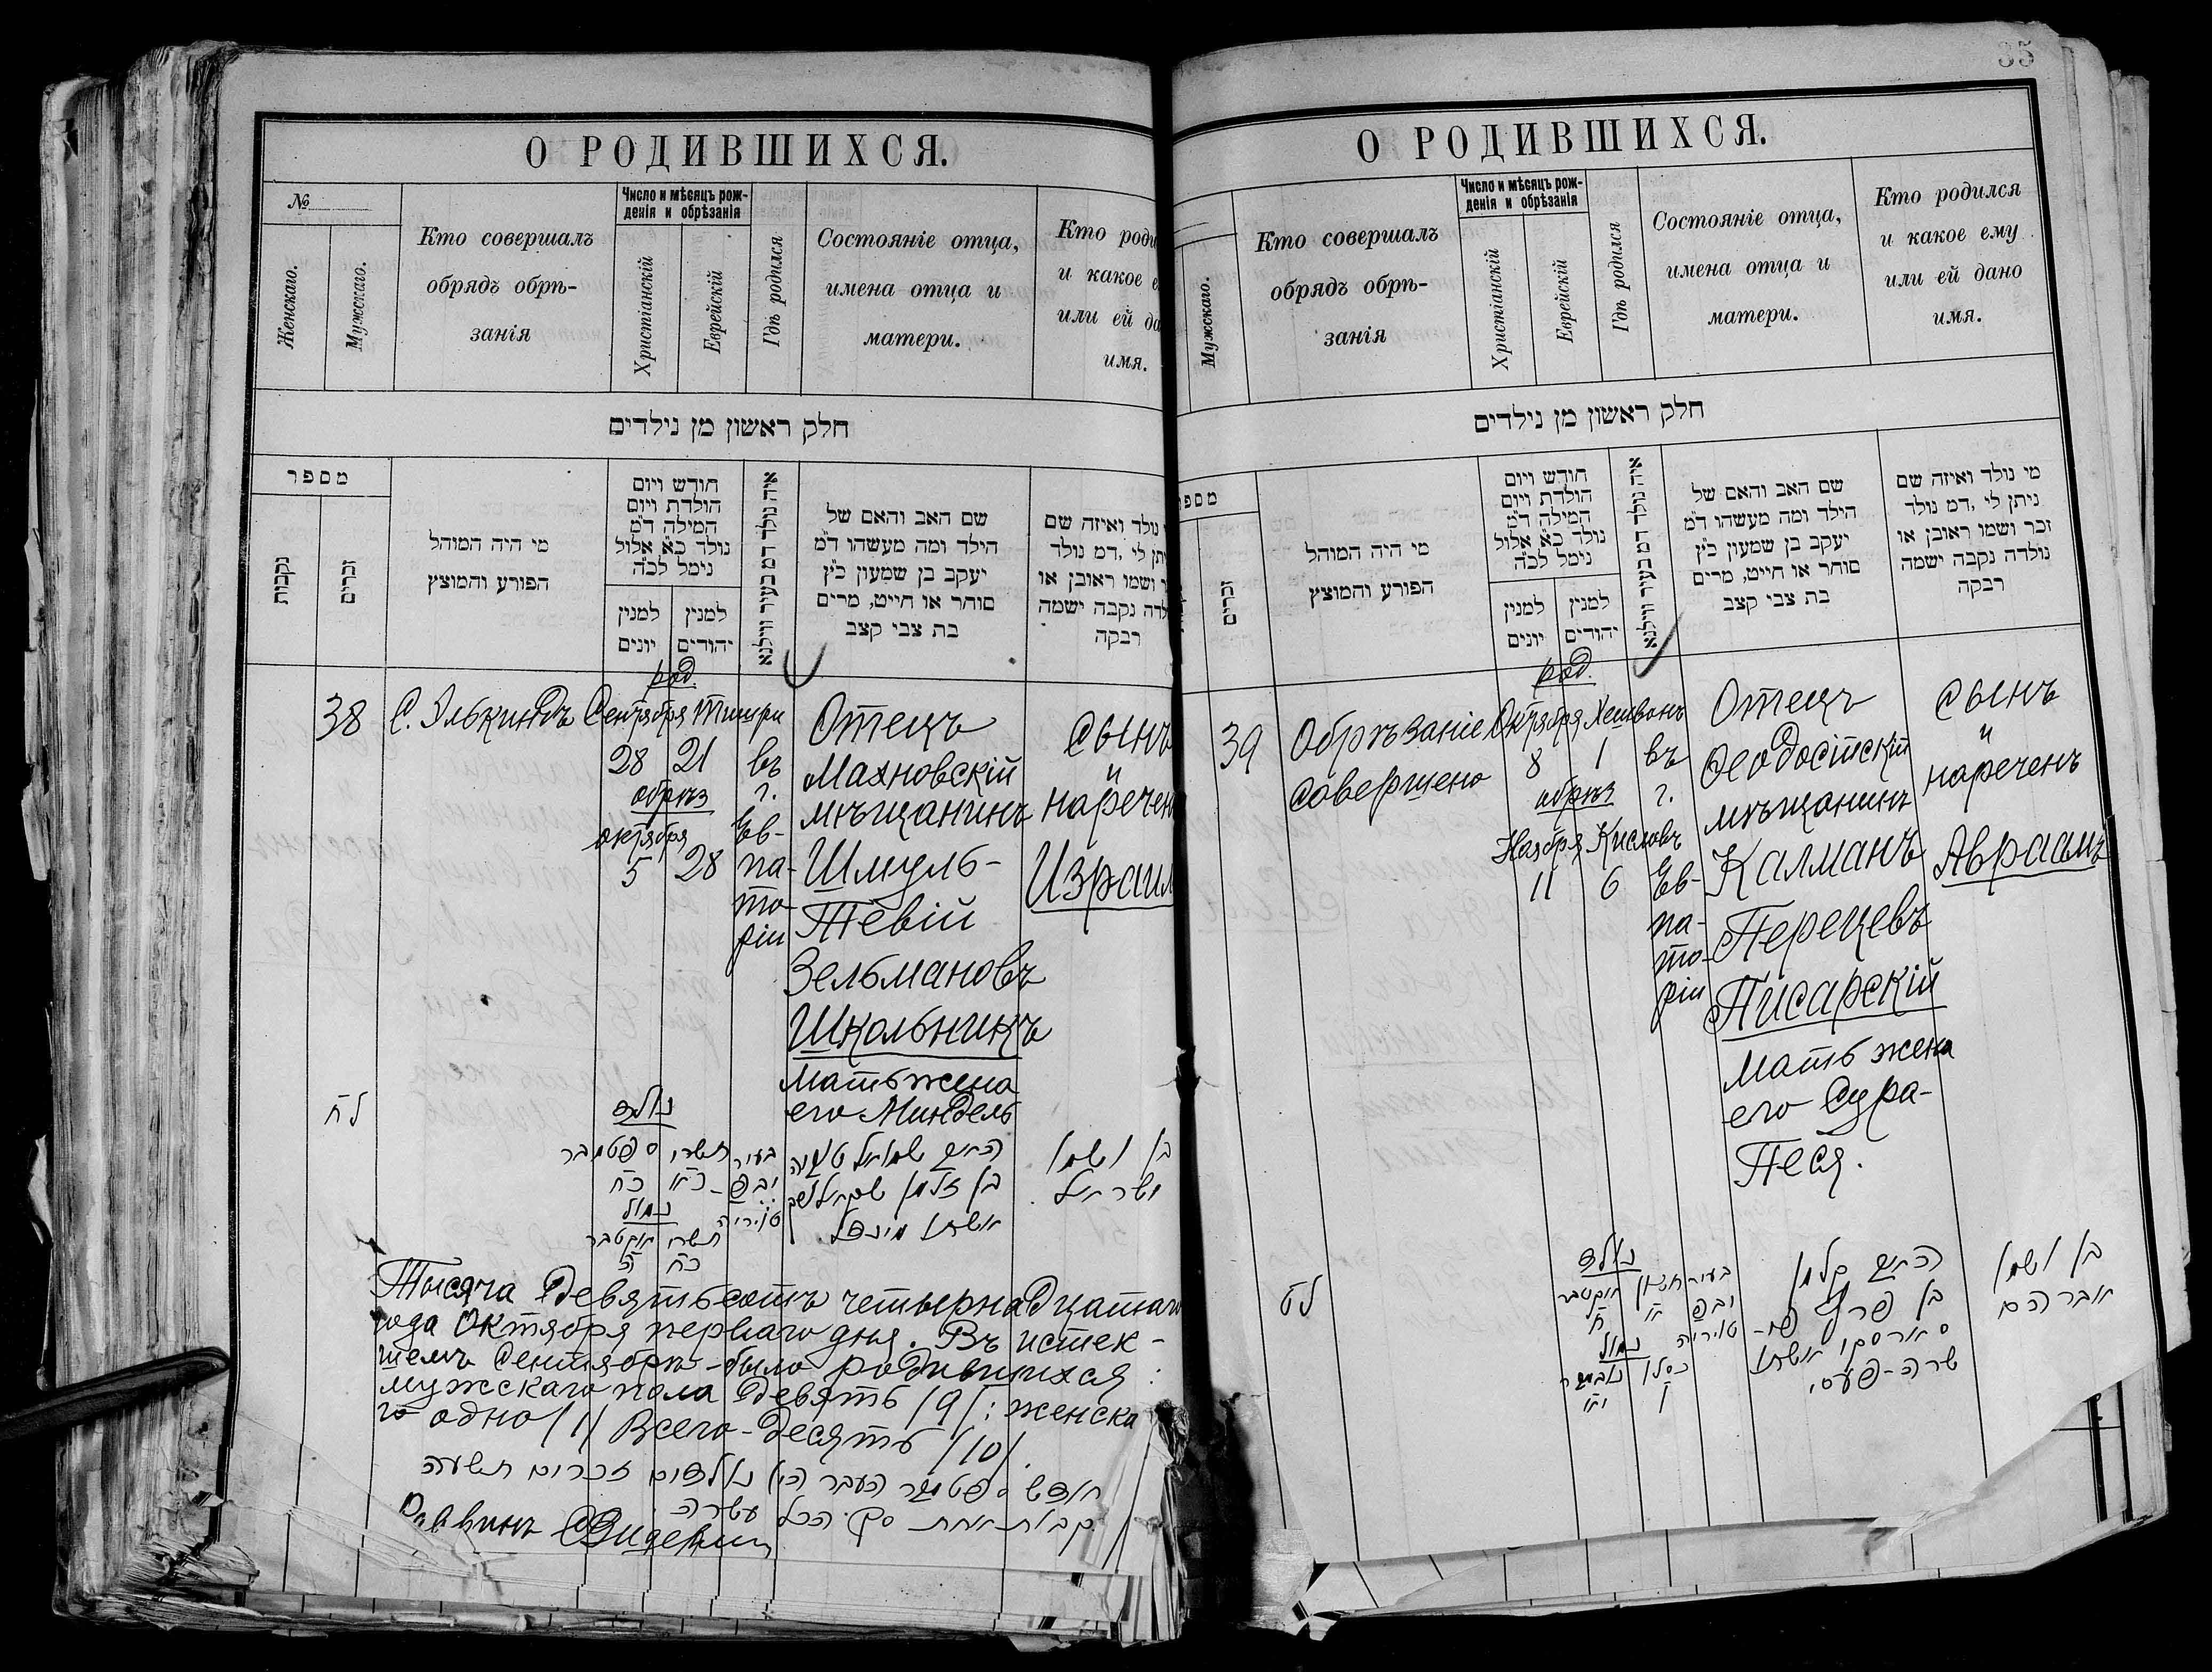 О РОДИВШИХСЯ.
№
Женскаго.
Мужскаго.
Кто совершалъ
обрядъ обрѣ-
занія
Число и мѣсяцъ рож-
денія и обрѣзанія
Христіанскій
Еврейскій
Гдѣ родился
Состояніе отца,
имена отца и
матери.
Кто роди
и какое е
или ей да
имя.
חלק ראשון מן נילדים
מספר
נקבות
זכרים
מי היה המוהל
הפורע והמוצץ
חודש ויום
הולדת ויום
המילה ד״מ
נולד כ״א אלול
נימל לכ״ה
למנין
יונים
למנין
יהודים
איה נולד דמ בעיר ווילנא
שם האב והאם של
הילד ומה מעשהו ד״מ
יעקב בן שמעון כ״ץ
סוחר או חייט, מרים
בת צבי קצב
נולד ואיזה שם
יתן לי ,דמ נולד
ושמו ראובן או
לדה נקבה ישמה
רבקה
38
С. Элькиндъ
род.
Сентября Тишри
28 21
обрѣз
октября
5 28
въ
г.
Ев-
па-
то-
ріи
Отецъ
Махновскій
мѣщанинъ
Шмуль-
Тевій
Зельмановъ
Школьникъ
Мать жена
его Миндель
сынъ
и
наречен
Израил
לח
נולד
ספטמבר תשרי
כח
נמול
אוקטבר תשרי
ה כח
בעיר
יבפ-
טוריה
האיש שמואל טעוויה
בן זלמן שקאלניק
אשתו מינדל.
בן ושמו
ישראל.
Тысяча девятьсотъ четырнадцатаго
года Октября перваго дня. Въ истек-
шемъ Сентябрѣ-было родившихся:
мужскаго пола девять /9/: женска
го одно /1/ Всего-десять /10/.
חודש ספטמבר העבר היו נולדים זכרים תשעה
נקבות אחת סך הכל עשרה
Раввинъ
35
О РОДИВШИХСЯ.
Мужскаго.
Кто совершалъ
обрядъ обрѣ-
занія
Число и мѣсяцъ рож-
денія и обрѣзанія
Христіанскій
Еврейскій
Гдѣ родился
Состояніе отца,
имена отца и
матери.
Кто родился
и какое ему
или ей дано
имя.
חלק ראשון מן נילדים
מספ
זכרים
מי היה המוהל
הפורע והמוצץ
חודש ויום
הולדת ויום
המילה ד״מ
נולד כ״א אלול
נימל לכ״ה
למנין
יונים
למנין
יהודים
איה נולד דמ בעיר ווילנא
שם האב והאם של
הילד ומה מעשהו ד״מ
יעקב בן שמעון כ״ץ
סוחר או חייט, מרים
בת צבי קצב
מי נולד ואיזה שם
ניתן לי ,דמ נולד
זכר ושמו ראובן או
נולדה נקבה ישמה
רבקה
39
Обрѣзаніе
совершено
род.
Октября Хешванъ
8 1
обрѣз
Ноября Кислевъ
11 6
въ
г.
Ев-
па-
то-
ріи
Отецъ
Ѳеодосійскій
мѣщанинъ
Калманъ
Перецевъ
Писарскій
Мать жена
его Сура-
Песя.
сынъ
и
нареченъ
Авраамъ
לט
נולד
אוקטבר חשון
ח א
נמול
נובמבר כסלו
יא ו
בעיר
יבפ
טוריה
האיש קלמן
בן פרץ פי-
סארסקי אשתו
שרה-פעסי.
בן ושמו
אברהם